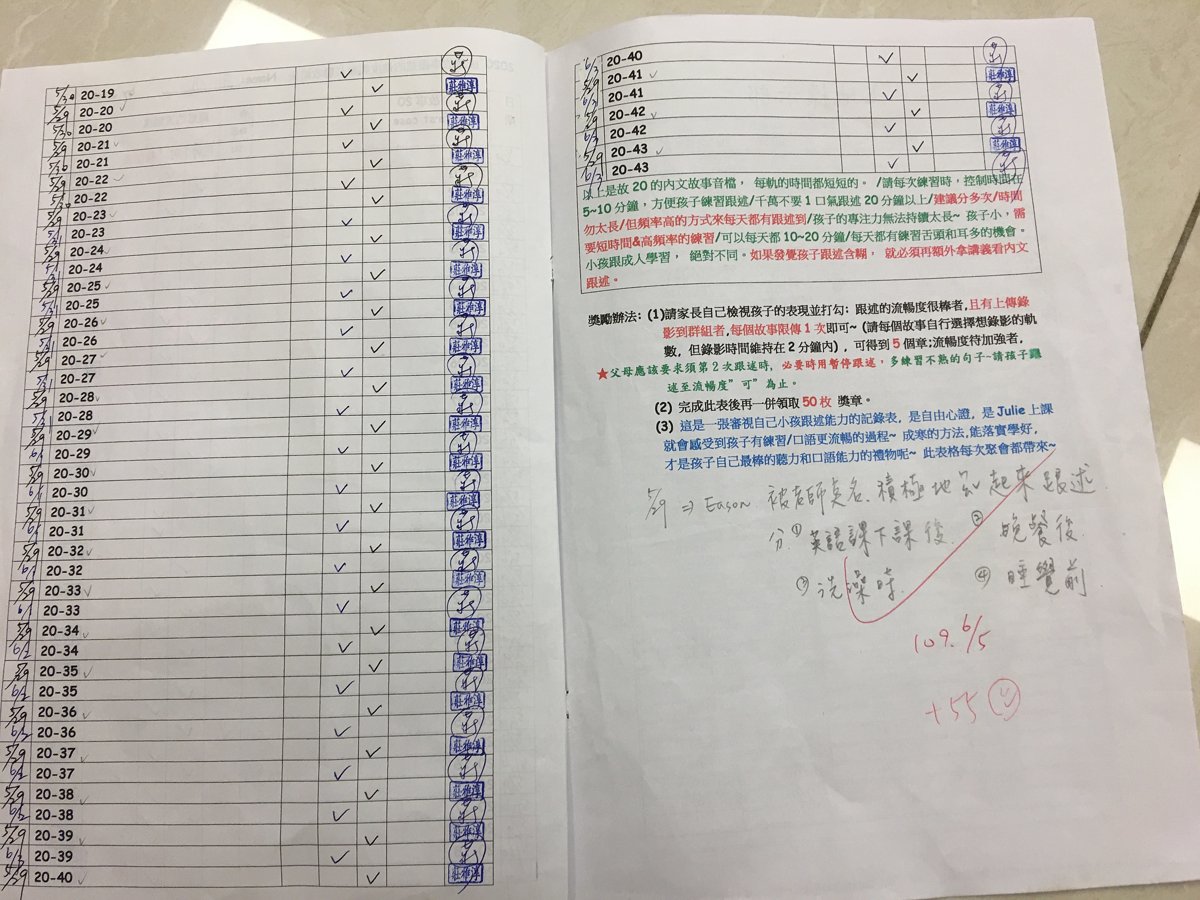 5/30 20-19
5/29 20-20
5/30 20-20
5/29 20-21
5/30 20-21
5/29 20-22
5/30 20-22
5/29 20-23
5/31 20-23
5/29 20-24
5/31 20-24
5/29 20-25
5/31 20-25
5/29 20-26
5/31 20-26
5/29 20-27
5/31 20-27
5/29 20-28
5/31 20-28
5/29 20-29
6/1 20-29
5/29 20-30
6/1 20-30
5/29 20-31
6/1 20-31
5/29 20-32
6/1 20-32
5/29 20-33
6/1 20-33
5/29 20-34
6/2 20-34
5/29 20-35
6/2 20-35
5/29 20-36
6/2 20-36
5/29 20-37
6/2 20-37
5/29 20-38
6/2 20-38
5/29 20-39
6/3 20-39
5/29 20-40
6/3 20-40
5/29 20-41
6/3 20-41
5/29 20-42
6/3 20-42
5/29 20-43
6/3 20-43
以上是故 20 的內文故事音檔, 每軌的時間都短短的。 /請每次練習時,控制時間在
5~10 分鐘,方便孩子練習跟述/千萬不要 1 口氣跟述 20 分鐘以上/建議分多次/時間
勿太長/但頻率高的方式來每天都有跟述到/孩子的專注力無法持續太長~ 孩子小,需
要短時間&高頻率的練習/可以每天都 10~20 分鐘/每天都有練習舌頭和耳多的機會。
小孩跟成人學習, 絕對不同。如果發覺孩子跟述含糊, 就必須再額外拿講義看內文
跟述。
獎勵辦法: (1)請家長自己檢視孩子的表現並打勾: 跟述的流暢度很棒者,且有上傳錄
影到群組者,每個故事限傳 1 次即可~ (請每個故事自行選擇想錄影的軌
數, 但錄影時間維持在 2 分鐘內) , 可得到 5 個章;流暢度待加強者,
★父母應該要求須第 2 次跟述時, 必要時用暫停跟述,多練習不熟的句子~請孩子跟
述至流暢度"可"為止。
(2) 完成此表後再一併領取 50 枚 獎章。
(3) 這是一張審視自己小孩跟述能力的記錄表, 是自由心證, 是 Julie 上課
就會感受到孩子有練習/口語更流暢的過程~ 成寒的方法,能落實學好,
才是孩子自己最棒的聽力和口語能力的禮物呢~ 此表格每次聚會都帶來~
5/29 ⇒ Eason 被老師莫名、積極地 起來跟述.
分 ① 英語課下課後. ② 晚餐後.
③ 洗澡時. ④ 睡覺前
109. 6/5
+55